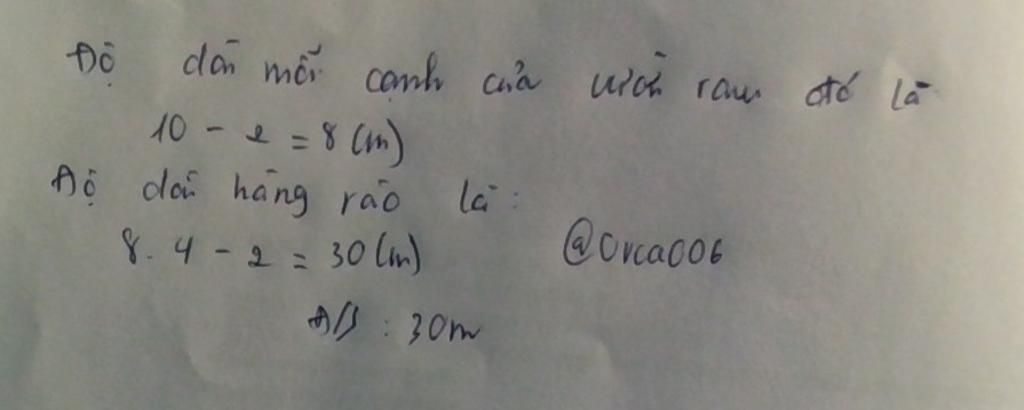 Độ dài mỗi cạnh của vườn rau đó là
10 - 2 = 8 (m)
Độ dài hàng rào là:
8. 4 - 2 = 30 (m)
@Orca006
Đ/S: 30m